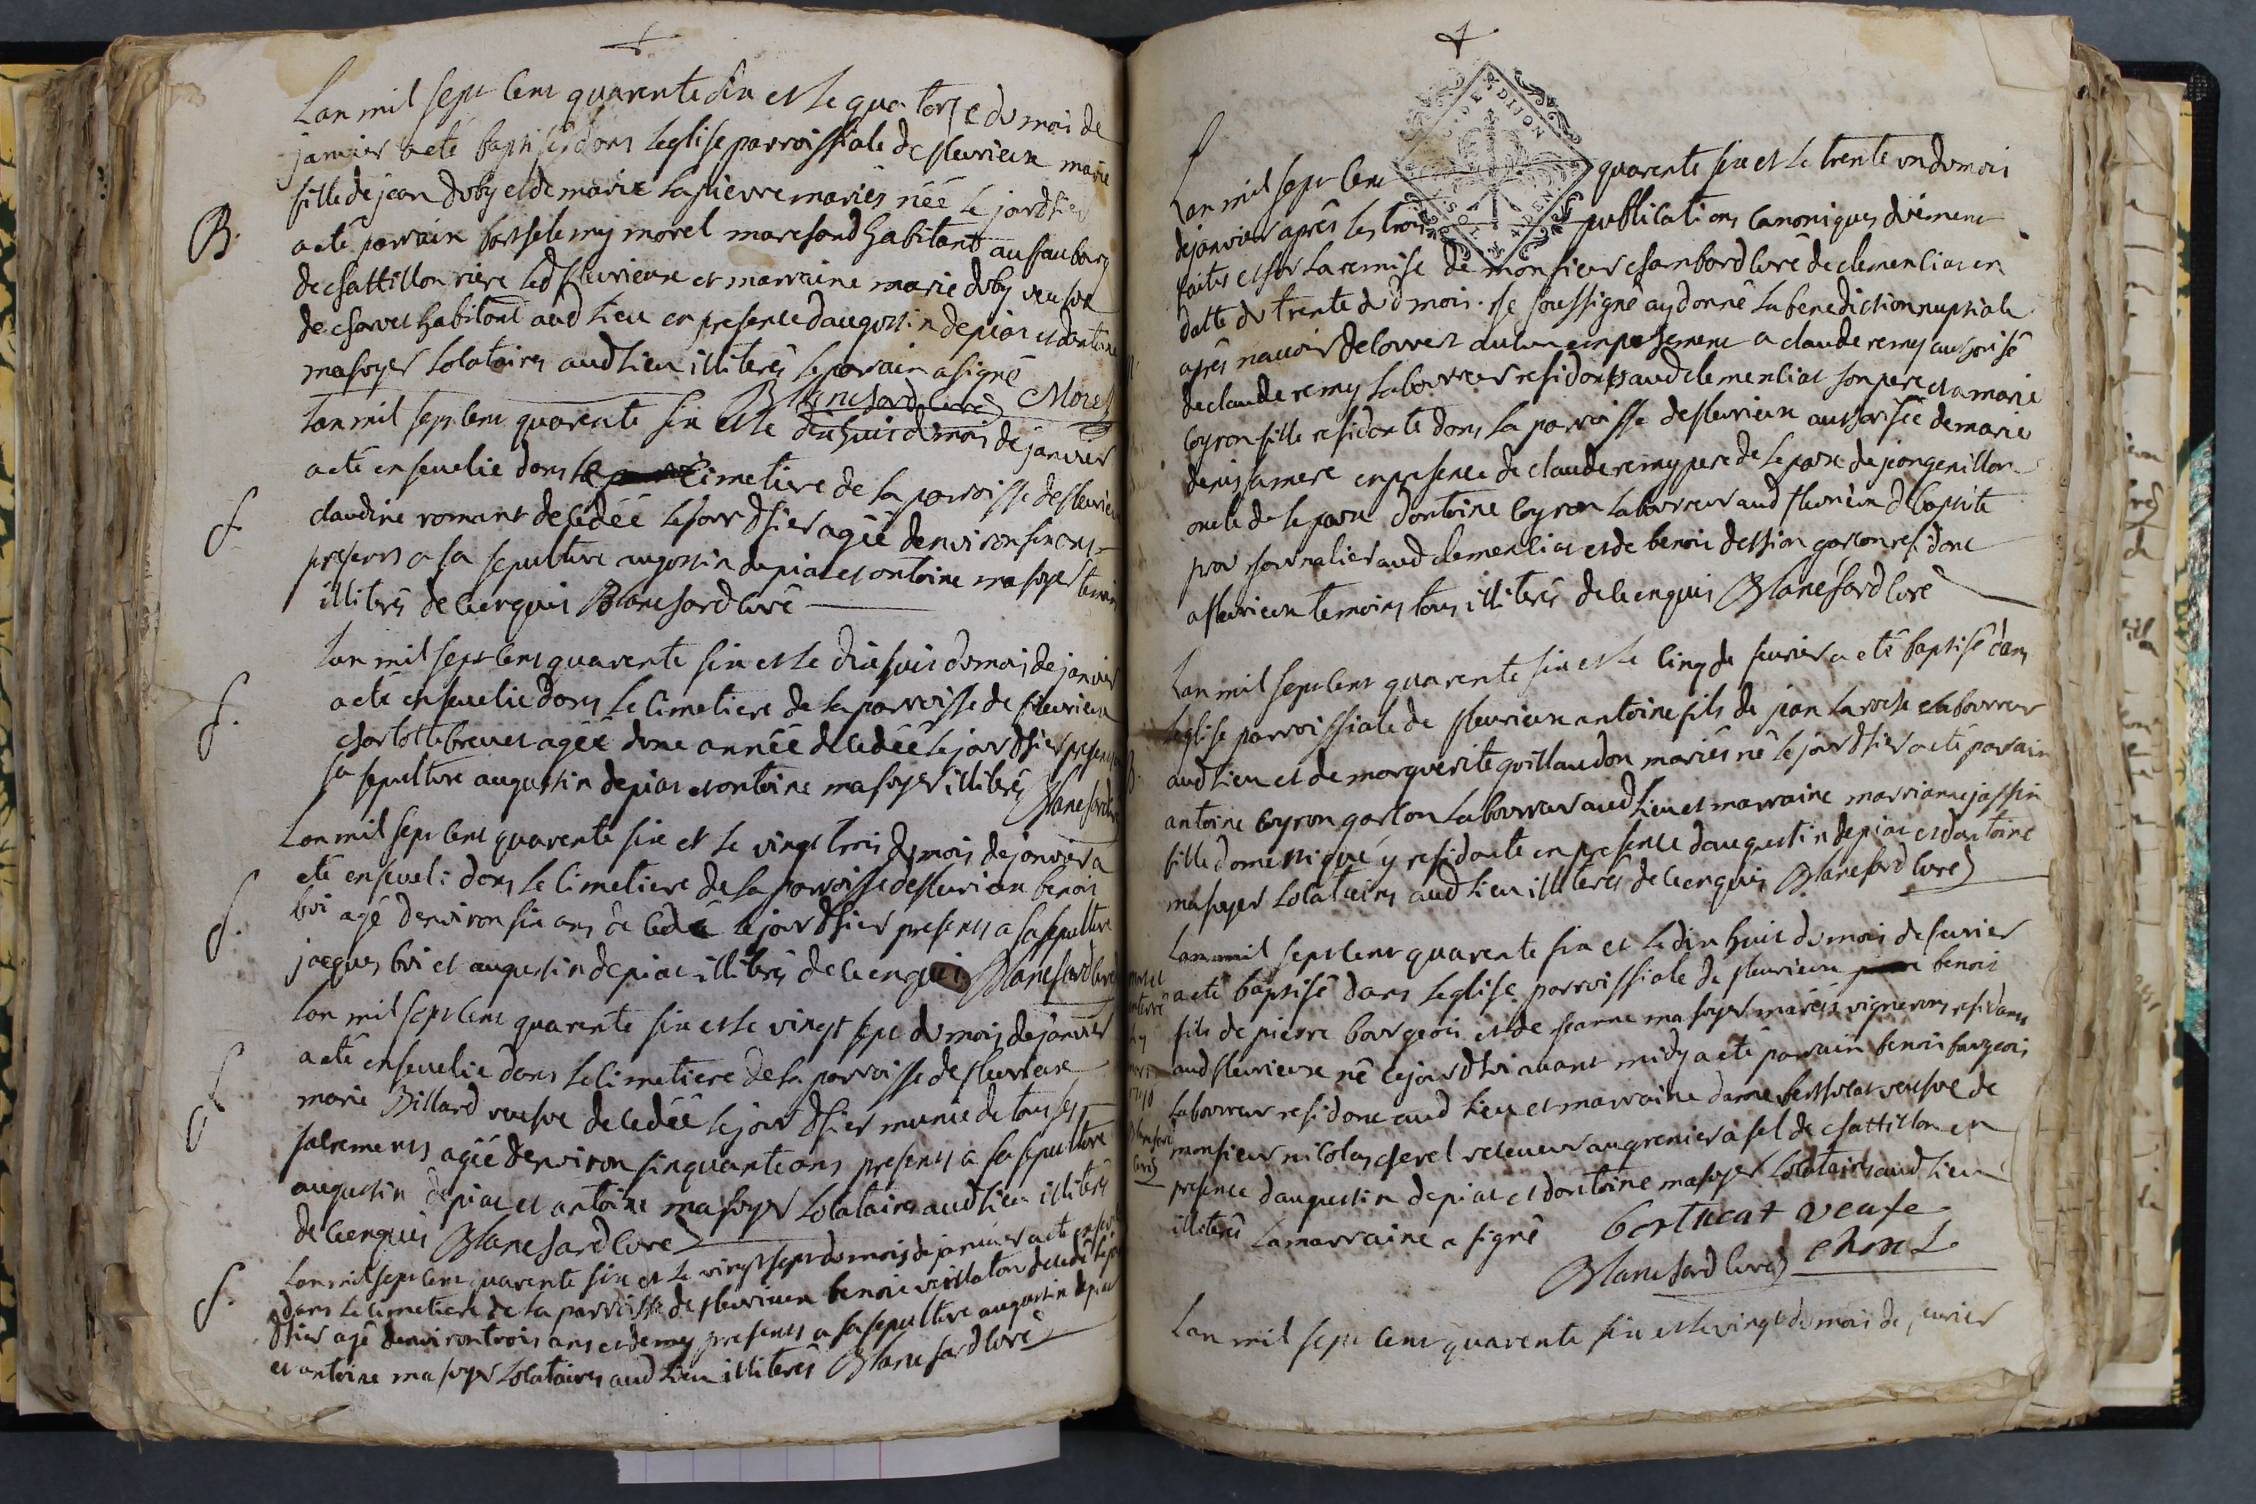 Lan mil sept cent quarente six et le quatorze du mois de
janvier a eté baptisée dans leglise parroissiale de fleurieux marie
fille de jean duby et de marie lapierre mariés née le jour dhier
B.
a eté parrain barthelemy morel marchand habitant au faubourg
de chattillon riere led fleurieux et marraine marie duby veufve
de charvet habitant aud lieu en presence daugustin depiat et dantoine
mahyer locataires aud lieu illiterés le parrain a signé
Blanchard curé Morel
Lan mil sept cent quarente six et le dix huit du mois de janvier
a eté ensevelie dans le cimetiere de la parroisse de fleurieux
S.
claudine romant decedée le jour dhier agée denviron six ans
presents a sa sepulture augustin depiat et antoine mahyer temoins
illiterés de ce enquis Blanchard curé
Lan mil sept cent quarente six et le dix huit du mois de janvier
S.
a eté ensevelie dans le cimetiere de la parroisse de fleurieux
charlotte brevet agée dune année decedée le jour dhier presents a
sa sepulture augustin depiat et antoine mahyer illiterés
Blanchard curé
Lan mil sept cent quarente six et le vingt trois du mois de janvier a
eté enseveli dans le cimetiere de la parroisse de fleurieux benoit
S.
bui agé denviron six ans decedé le jour dhier presents a sa sepulture
jacques bui et augustin depiat illiterés de ce enquis Blanchard curé
Lan mil sept cent quarente six et le vingt sept du mois de janvier
a eté ensevelie dans le cimetiere de la parroisse de fleurieux
S.
marie Billard veufve decedée le jour dhier munie de tous les
sacrements agée denviron sinquante ans presents a sa sepulture
augustin depiat et antoine mahyer locataires aud lieu illiterés
de ce enquis Blanchard curé
Lan mil sept cent quarente six et le vingt sept du mois de janvier a eté enseveli
S.
dans le cimetiere de la parroisse de fleurieux benoit decedé le jour
dhier agé denviron trois ans et demy presents a sa sepulture augustin depiat
et antoine mahyer locataires aud lieu illiterés Blanchard curé
G. DE DIJON
SOL 4 DEN
Lan mil sept cent quarente six et le trente un du mois
de janvier après les trois publications canoniques duement
faites et sur la remise de monsieur chambard curé de clemenciat en
datte du trente dud mois. je soussigné ay donné la benediction nuptiale
après navoir decouvert aucun empechement a claude remy authorisé
de claude remy laboureur residant aud clemenciat son pere et a marie
Coyron fille residante dans la parroisse de fleurieux authorisée de marie
denis sa mere en presence de claude remy pere de lepoux de jean genillon
oncle de lepoux dantoine Coyron laboureur aud fleurieux de baptiste
journalier aud clemenciat et de benoit garcon residant
a fleurieux temoins tous illiterés de ce enquis Blanchard curé
Lan mil sept cent quarente six et le cinq de fevrier a eté baptisé dans
leglise parroissiale de fleurieux antoine fils de jean laroche laboureur
aud lieu et de marguerite guillaudon mariés né le jour dhier a eté parrain
antoine Coyron garcon laboureur aud lieu et marraine marrianne
fille domestique y residante en presence daugustin depiat et dantoine
mahyer locataires aud lieu illiterés de ce enquis Blanchard curé
Lan mil sept cent quarente six et le dix huit du mois de fevrier
a eté baptisé dans leglise parroissiale de fleurieux benoit
fils de pierre bourgeois et de jeanne mahyer mariés vignerons residants
aud fleurieux né cejourdhui avant midy a eté parrain benoit bourgeois
laboureur residant aud lieu et marraine dame berthucat veufve de
monsieur nicolas chevel receveur au grenier a sel de chattillon en
presence daugustin depiat et dantoine mahyer locataires aud lieu
illiterés la marraine a signé bertucat veufe
Blanchard curé
Lan mil sept cent quarente six et le vingt du mois de fevrier